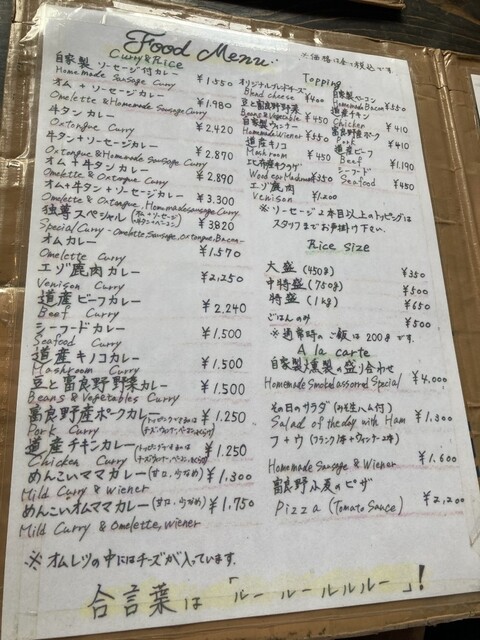 Food Menu
※価格は全て税込です。
Curry & Rice
自家製ソーセージ付カレー ¥1,550
Homemade Sausage Curry
オム+ソーセージカレー ¥1,980
Omelette & Homemade Sausage Curry
牛タンカレー ¥2,420
Oxtongue Curry
牛タン+ソーセージカレー ¥2,870
Oxtongue & Homemade Sausage Curry
オム+牛タンカレー ¥2,890
Omelette & Oxtongue Curry
オム+牛タン+ソーセージカレー ¥3,300
Omelette & Oxtongue, Homemade sausage Curry
独尊スペシャル ¥3,820
Special Curry - Omelette, Sausage, Oxtongue, Bacon -
オムカレー ¥1,570
Omelette Curry
エゾ鹿肉カレー ¥2,250
Venison Curry
道産ビーフカレー ¥2,240
Beef Curry
シーフードカレー ¥1,500
Seafood Curry
道産キノコカレー ¥1,500
Mashroom Curry
豆と富良野野菜カレー ¥1,500
Beans & Vegetables Curry
富良野産ポークカレー ¥1,250
Pork Curry
道産チキンカレー ¥1,250
Chicken Curry
めんこいママカレー(甘口、少なめ) ¥1,300
Mild Curry & Wiener
めんこいオムママカレー(甘口、少なめ) ¥1,750
Mild Curry & Omelette, Wiener
※オムレツの中にはチーズが入っています。
Topping
オリジナルブレンドチーズ
Blend cheese ¥400
豆と富良野野菜
Beans & Vegetables ¥450
自家製ウィンナー
Homemade Wiener ¥350
道産キノコ
Mashroom ¥450
Wood ear Mashroom ¥350
エゾ鹿肉
Venison ¥1,200
自家製ベーコン
Homemade Bacon ¥550
道産チキン
Chicken ¥410
富良野産ポーク
Pork ¥410
道産ビーフ
Beef ¥1,190
シーフード
Seafood ¥450
※ソーセージ2本目以上のトッピングは
スタッフまでお声掛け下さい。
Rice size
大盛(450g) ¥350
中特盛(750g) ¥500
特盛(1kg) ¥650
ごはんのみ ¥500
※通常時のご飯は200gです。
A la carte
自家製燻製の盛り合わせ
Homemade Smoked assorred Special ¥4,000
その日のサラダ(みそ生ハム付)
Salad of the day with Ham ¥1,300
フ+ウ(フランク1本+ウィンナー2本)
Homemade Sausage & Wiener ¥1,600
富良野小麦のピザ
Pizza (Tomato Sauce) ¥2,200
合言葉は「ルー ルールルルー」!